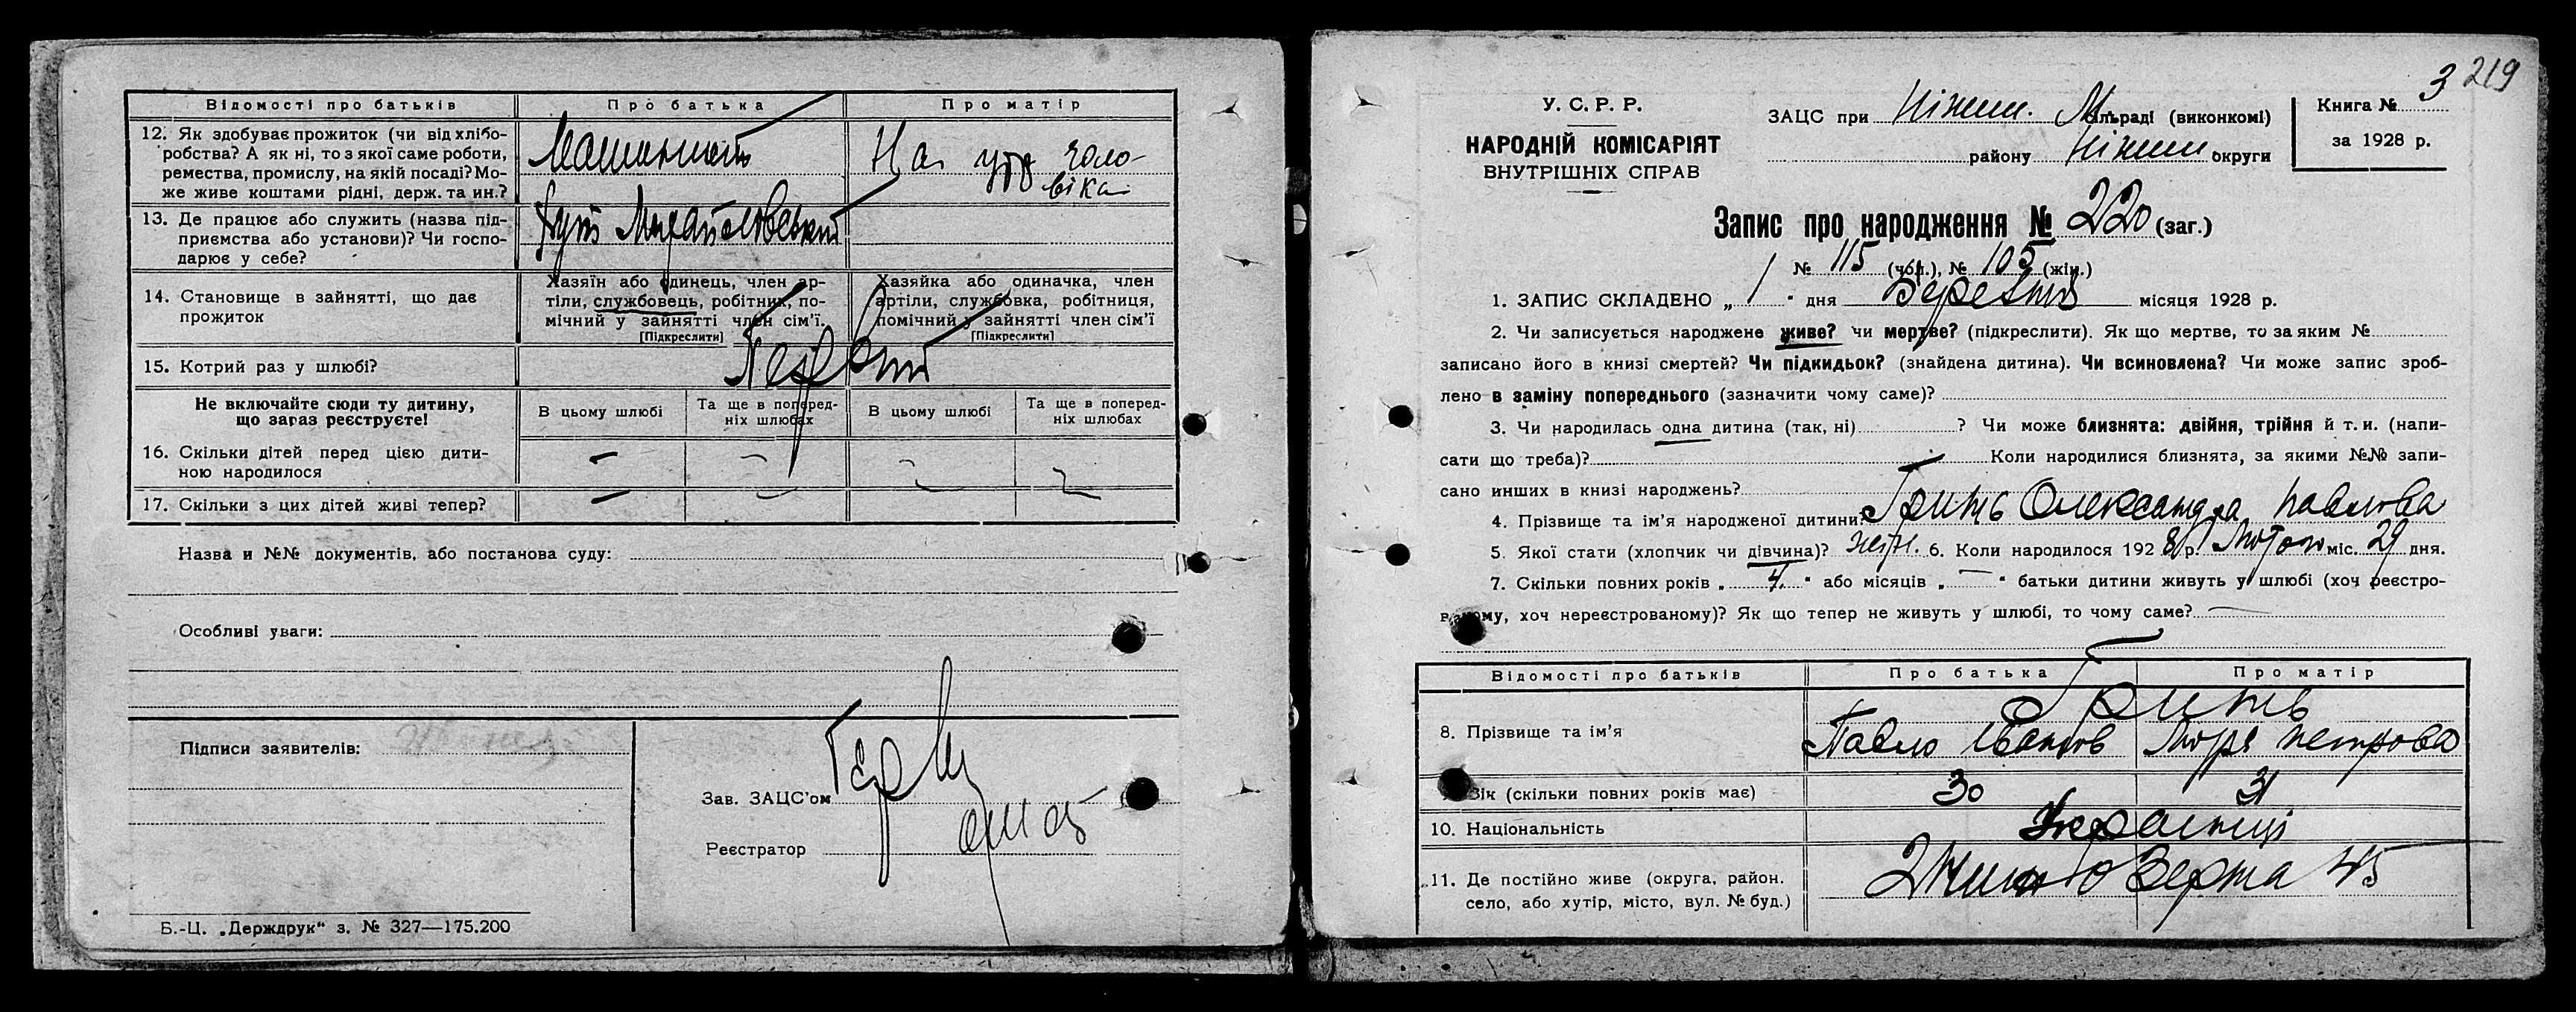 Відомості про батьків
Про батька
Про матір
12. Як здобуває прожиток (чи від хлібо-
робства? А як ні, то з якої саме роботи,
ремества, промислу, на якій посаді? Мо-
же живе коштами рідні, держ. та ин.?
На утр чоло-
віка
13. Де працює або служить (назва під-
приємства або установи)? Чи госпо-
дарює у себе?
14. Становище в зайнятті, що дає
прожиток
Хазяїн або одинець, член ар-
тіли, службовець, робітник, по-
мічний у зайнятті член сім'ї.
[Підкреслити]
Хазяйка або одиначка, член
артіли, службовка, робітниця,
помічний у зайнятті член сім'ї
[Підкреслити]
15. Котрий раз у шлюбі?
Первий
Не включайте сюди ту дитину,
що зараз реєструєте!
В цьому шлюбі
Та ще в поперед-
ніх шлюбах
В цьому шлюбі
Та ще в поперед-
ніх шлюбах
16. Скільки дітей перед цією дити-
ною народилося
17. Скільки з цих дітей живі тепер?
Назва и №№ документів, або постанова суду:
Особливі уваги:
Підписи заявителів:
Зав. ЗАЦС'ом
Реєстратор
Б.-Ц. „Держдрук“ з. № 327—175.200
219
У. С. Р. Р.
НАРОДНІЙ КОМІСАРІЯТ
ВНУТРІШНІХ СПРАВ
ЗАЦС при Ніжин. Міськраді (виконкомі)
району Ніжин округи
Книга № 3
за 1928 р.
Запис про народження № 220 (заг.)
№ 115 (чол.), № 105 (жін.)
1. ЗАПИС СКЛАДЕНО „ 1 “ дня Березня місяця 1928 р.
2. Чи записується народжене живе? чи мертве? (підкреслити). Як що мертве, то за яким №
записано його в книзі смертей? Чи підкидьок? (знайдена дитина). Чи всиновлена? Чи може запис зроб-
лено в заміну попереднього (зазначити чому саме)?
3. Чи народилась одна дитина (так, ні) ? Чи може близнята: двійня, трійня й т. и. (напи-
сати що треба)? Коли народилися близнята, за якими №№ запи-
сано инших в книзі народжень?
4. Прізвище та ім'я народженої дитини? Гринь Олександра Павлова
5. Якої стати (хлопчик чи дівчина)? жін. 6. Коли народилося 1928 р. Лютого міс. 29 дня.
7. Скільки повних років „ 4. “ або місяців „ — “ батьки дитини живуть у шлюбі (хоч реєстро-
ваному, хоч нереєстрованому)? Як що тепер не живуть у шлюбі, то чому саме?
Відомості про батьків
Про батька
Про матір
8. Прізвище та ім'я
Гринь
Павло Іванов
Петрова
9. Вік (скільки повних років має)
30
31
10. Національність
Українці
11. Де постійно живе (округа, район.
село, або хутір, місто, вул. № буд.)
45